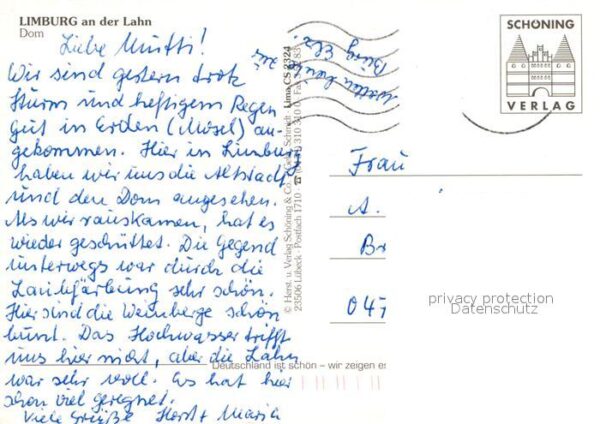 LIMBURG an der Lahn
Dom
Liebe Mutti!
Wir sind gestern trotz
Sturm und heftigem Regen
gut in Erden (Mosel) an-
gekommen. Hier in Limburg
haben wir uns die Altstadt
und den Dom angesehen.
Als wir rauskamen, hat es
wieder geschüttet. Die Gegend
unterwegs war durch die
Laubfärbung sehr schön.
Hier sind die Weinberge schön
bunt. Das Hochwasser trifft
uns hier nicht, aber die Lahn
war sehr voll. Es hat hier
schon viel geregnet.
Viele Grüße Horst + Maria
wir
zur
Burg Elz.
© Herst. u. Verlag Schöning & Co. + Gebr. Schmidt · Lima CS 8324
23506 Lübeck · Postfach 1710 · ☎
SCHÖNING
VERLAG
Frau
A.
Br
047
privacy protection
Datenschutz
Deutschland ist schön – wir zeigen es